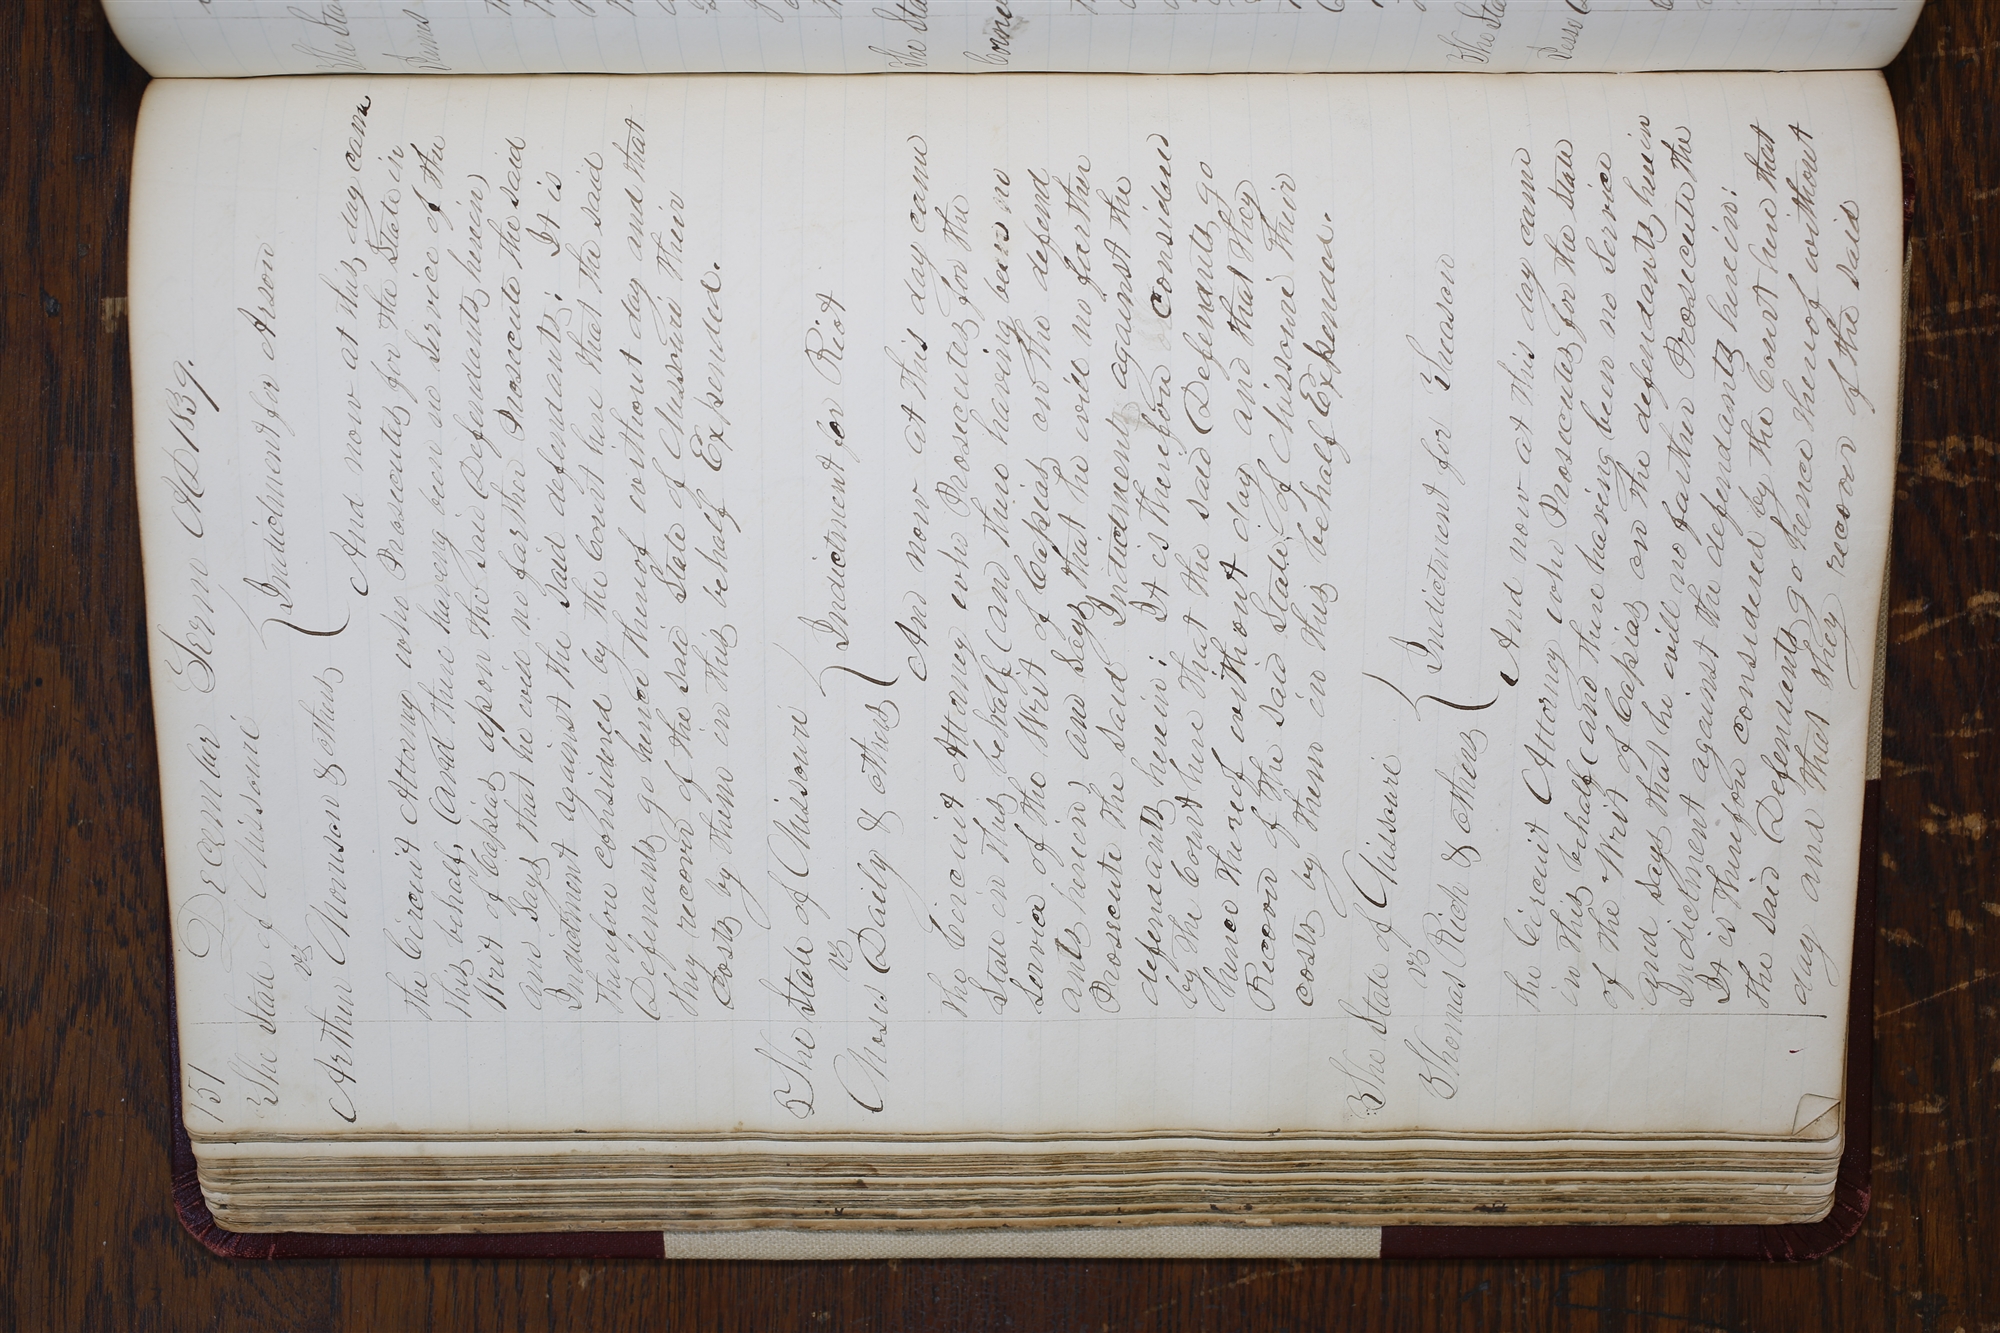 151 December Term AD 1839.
The State of Missouri
vs
Indictment for Arson
Arthur Morrison & others
And now at this day came
the Circuit Attorney who Prosecutes for the State in
this behalf, (and there having been no service of the
Writ of Capias upon the said Defendants herein)
and says that he will no farther Prosecute the said
Indictment against the said defendants; It is
therefore considered by the Court here that the said
Defendants go hence thereof without day and that
they recover of the said State of Missouri their
Costs by them in this behalf Expended.
The State of Missouri
vs
Indictment for Riot
Moses Daily & others
And now at this day came
the Circuit Attorney who Prosecutes for the
State in this behalf (and there having been no
service of the Writ of Capias on the defend
ants herein) and says that he will no farther
Prosecute the said Indictment against the
defendants herein; It is therefore considered
by the Court here that the said Defendants go
hence thereof without day and that they
Recover of the said State of Missouri their
costs by them in this behalf Expended.
The State of Missouri
vs
Indictment for Treason
Thomas Rich & others
And now at this day came
the Circuit Attorney who Prosecutes for the State
in this behalf (and there having been no Service
of the Writ of Capias on the defendants herein
and says that he will no farther Prosecute the
Indictment against the defendants herein:
It is therefore considered by the Court here that
the said Defendents go hence thereof without
day and that they recover of the said
The Sta
James
The Sta
Corne
The Sta
Jesse